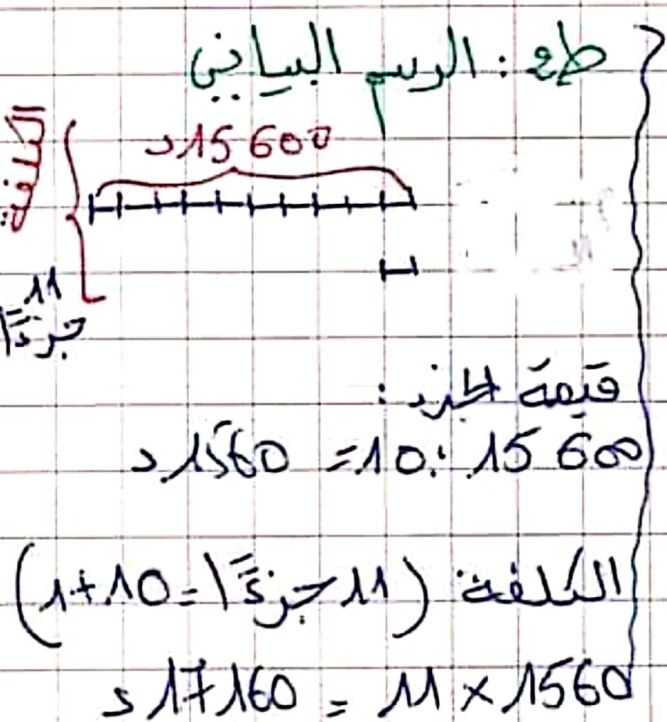 ط2 : الرسم البياني
15 600 د
الكلفة:
11 جزءًا
قيمة الجزء :
15 600 : 10 = 1560 د
الكلفة (11 جزءًا = 10 + 1)
1560 × 11 = 17 160 د